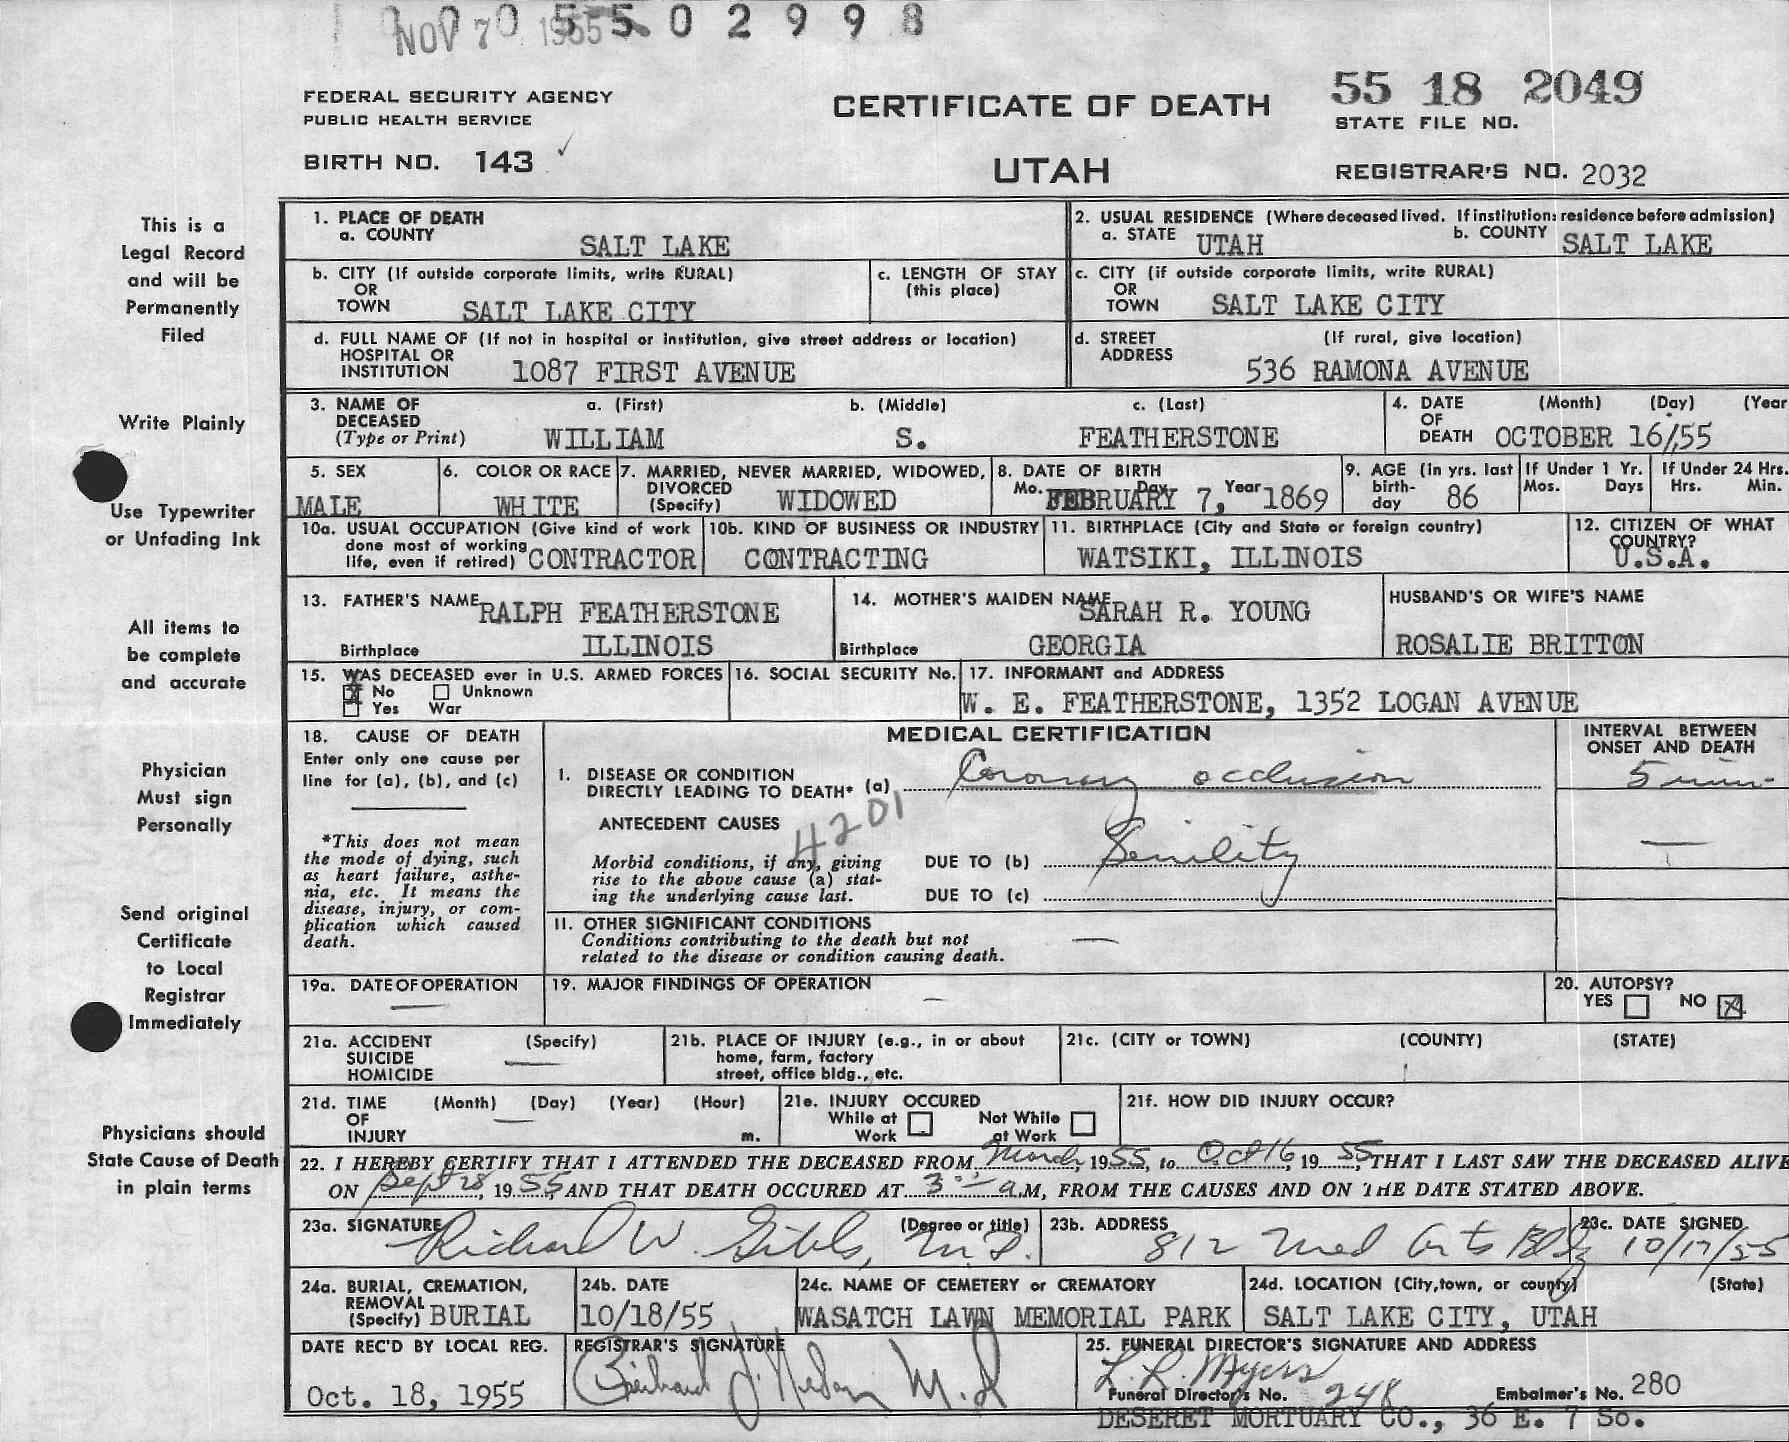 NOV 7 1955 5 0 2 9 9 8
FEDERAL SECURITY AGENCY
PUBLIC HEALTH SERVICE
BIRTH NO. 143 ✓
CERTIFICATE OF DEATH
UTAH
55 18 2049
STATE FILE NO.
REGISTRAR'S NO. 2032
This is a
Legal Record
and will be
Permanently
Filed
Write Plainly
Use Typewriter
or Unfading Ink
All items to
be complete
and accurate
Physician
Must sign
Personally
Send original
Certificate
to Local
Registrar
Immediately
Physicians should
State Cause of Death
in plain terms
1. PLACE OF DEATH
a. COUNTY SALT LAKE
2. USUAL RESIDENCE (Where deceased lived. If institution: residence before admission)
a. STATE UTAH b. COUNTY SALT LAKE
b. CITY (If outside corporate limits, write RURAL)
OR
TOWN SALT LAKE CITY
c. LENGTH OF STAY
(this place)
c. CITY (if outside corporate limits, write RURAL)
OR
TOWN SALT LAKE CITY
d. FULL NAME OF (If not in hospital or institution, give street address or location)
HOSPITAL OR
INSTITUTION 1087 FIRST AVENUE
d. STREET (If rural, give location)
ADDRESS 536 RAMONA AVENUE
3. NAME OF a. (First) b. (Middle) c. (Last)
DECEASED
(Type or Print) WILLIAM S. FEATHERSTONE
4. DATE (Month) (Day) (Year
OF
DEATH OCTOBER 16/,55
5. SEX
MALE
6. COLOR OR RACE
WHITE
7. MARRIED, NEVER MARRIED, WIDOWED,
DIVORCED
(Specify) WIDOWED
8. DATE OF BIRTH
Mo. Day Year
FEBRUARY 7, 1869
9. AGE (in yrs. last
birth-
day 86
If Under 1 Yr.
Mos. Days
If Under 24 Hrs.
Hrs. Min.
10a. USUAL OCCUPATION (Give kind of work
done most of working
life, even if retired) CONTRACTOR
10b. KIND OF BUSINESS OR INDUSTRY
CONTRACTING
11. BIRTHPLACE (City and State or foreign country)
WATSIKI, ILLINOIS
12. CITIZEN OF WHAT
COUNTRY?
U.S.A.
13. FATHER'S NAME RALPH FEATHERSTONE
Birthplace ILLINOIS
14. MOTHER'S MAIDEN NAME SARAH R. YOUNG
Birthplace GEORGIA
HUSBAND'S OR WIFE'S NAME
ROSALIE BRITTON
15. WAS DECEASED ever in U.S. ARMED FORCES
No Unknown
Yes War
16. SOCIAL SECURITY No.
17. INFORMANT and ADDRESS
W. E. FEATHERSTONE, 1352 LOGAN AVENUE
18. CAUSE OF DEATH
Enter only one cause per
line for (a), (b), and (c)
*This does not mean
the mode of dying, such
as heart failure, asthe-
nia, etc. It means the
disease, injury, or com-
plication which caused
death.
MEDICAL CERTIFICATION
INTERVAL BETWEEN
ONSET AND DEATH
I. DISEASE OR CONDITION
DIRECTLY LEADING TO DEATH* (a) Coronary occlusion 5 min-
ANTECEDENT CAUSES
4201
Morbid conditions, if any, giving
rise to the above cause (a) stat-
ing the underlying cause last.
DUE TO (b) Senility —
DUE TO (c)
II. OTHER SIGNIFICANT CONDITIONS
Conditions contributing to the death but not
related to the disease or condition causing death. —
19a. DATE OF OPERATION
—
19. MAJOR FINDINGS OF OPERATION
—
20. AUTOPSY?
YES NO X
21a. ACCIDENT (Specify)
SUICIDE —
HOMICIDE
21b. PLACE OF INJURY (e.g., in or about
home, farm, factory
street, office bldg., etc.
21c. (CITY or TOWN) (COUNTY) (STATE)
21d. TIME (Month) (Day) (Year) (Hour)
OF —
INJURY m.
21e. INJURY OCCURED
While at Not While
Work at Work
21f. HOW DID INJURY OCCUR?
22. I HEREBY CERTIFY THAT I ATTENDED THE DECEASED FROM March, 1955, to Oct 16, 19 55, THAT I LAST SAW THE DECEASED ALIVE
ON Sept 28, 19 55, AND THAT DEATH OCCURED AT 3 a.M, FROM THE CAUSES AND ON THE DATE STATED ABOVE.
23a. SIGNATURE (Degree or title)
Richard W. Gibbs, M.D.
23b. ADDRESS
812 Med Arts Bldg
23c. DATE SIGNED
10/17/55
24a. BURIAL, CREMATION,
REMOVAL
(Specify) BURIAL
24b. DATE
10/18/55
24c. NAME OF CEMETERY or CREMATORY
WASATCH LAWN MEMORIAL PARK
24d. LOCATION (City, town, or county) (State)
SALT LAKE CITY, UTAH
DATE REC'D BY LOCAL REG.
Oct. 18, 1955
REGISTRAR'S SIGNATURE
M.D
25. FUNERAL DIRECTOR'S SIGNATURE AND ADDRESS
L. R. Myers
Funeral Director's No. 248 Embalmer's No. 280
DESERET MORTUARY CO., 36 E. 7 So.